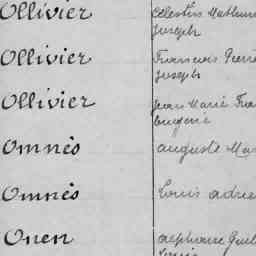 Ollivier Célestin Mathurin
Joseph
Ollivier François Pierre
Joseph
Ollivier Jean Marie Fra
Eugène
Omnès Auguste Ma
Omnès Louis
Onen Alphonse Guil
Louis